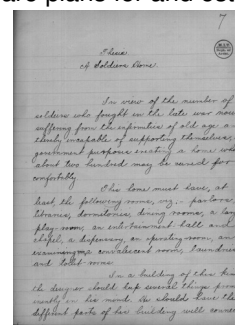 are plans for and est
7
Thesis
A Soldiers Home.
In view of the number of
soldiers who fought in the late war now
suffering from the infirmities of old age a
tirely incapable of supporting themselves,
government propose erecting a home wh
about two hundred may be cared for
comfortably.
This home must have, at
least the following rooms, viz; parlors,
libraries, dormitories, dining rooms, a lar
play room, an entertainment hall and
chapel, a dispensary, an operating room, an
convalescent room, laundries
and toilet rooms.
In a building of this kin
the designer should keep several things prom
nently in his mind. He should have the
different parts of his building well conn